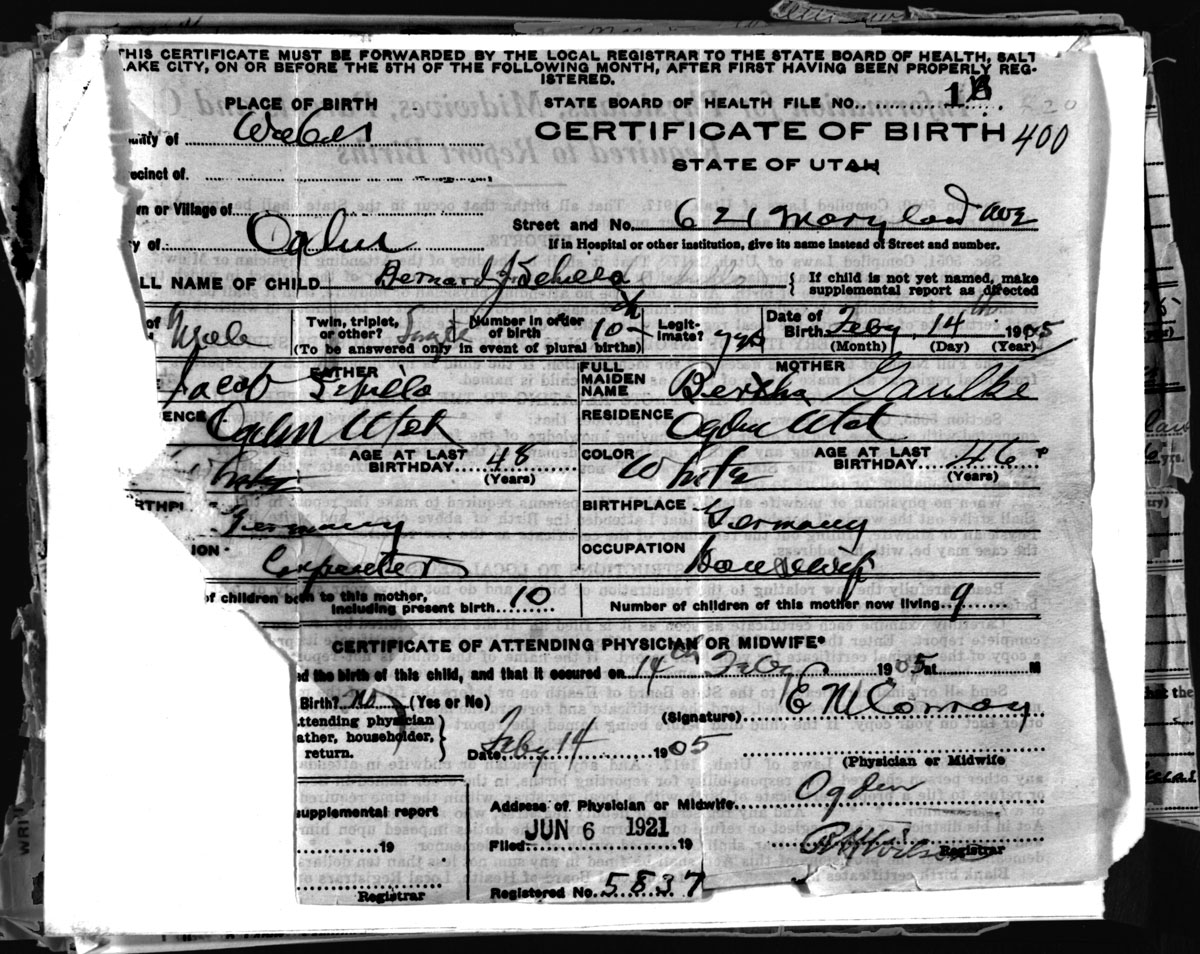 THIS CERTIFICATE MUST BE FORWARDED BY THE LOCAL REGISTRAR TO THE STATE BOARD OF HEALTH, SALT
LAKE CITY, ON OR BEFORE THE 5TH OF THE FOLLOWING MONTH, AFTER FIRST HAVING BEEN PROPERLY REG-
ISTERED.
PLACE OF BIRTH
STATE BOARD OF HEALTH FILE NO.
unty of Weber
CERTIFICATE OF BIRTH 400
STATE OF UTAH
ecinct of
wn or Village of
Street and No. 621 Maryland Ave
ty of Ogden
If in Hospital or other institution, give its name instead of Street and number.
LL NAME OF CHILD Bernard J
If child is not yet named, make
supplemental report as directed
of Male
Twin, triplet, or other? Single
Number in order of birth 10th
(To be answered only in event of plural births)
Legit-imate? yes
Date of Birth Feby 14th 1905
(Month) (Day) (Year)
FATHER
Jacob
FULL MAIDEN NAME
MOTHER
Bertha Gaulke
ENCE Ogden Utah
RESIDENCE Ogden Utah
AGE AT LAST BIRTHDAY 48
(Years)
COLOR White
AGE AT LAST BIRTHDAY 46
(Years)
RTHPL Germany
BIRTHPLACE Germany
ION Carpenter
OCCUPATION Housewife
of children born to this mother, including present birth 10
Number of children of this mother now living 9
CERTIFICATE OF ATTENDING PHYSICIAN OR MIDWIFE*
ed the birth of this child, and that it occured on 14th Feby 1905 at M
Birth? No (Yes or No)
(Signature) E M Conroy
attending physician
ather, householder,
return.
Date Feby 14 1905
(Physician or Midwife
Address of Physician or Midwife Ogden
supplemental report
19
JUN 6 1921
Filed 19
Registrar
Registrar
Registered No. 5837